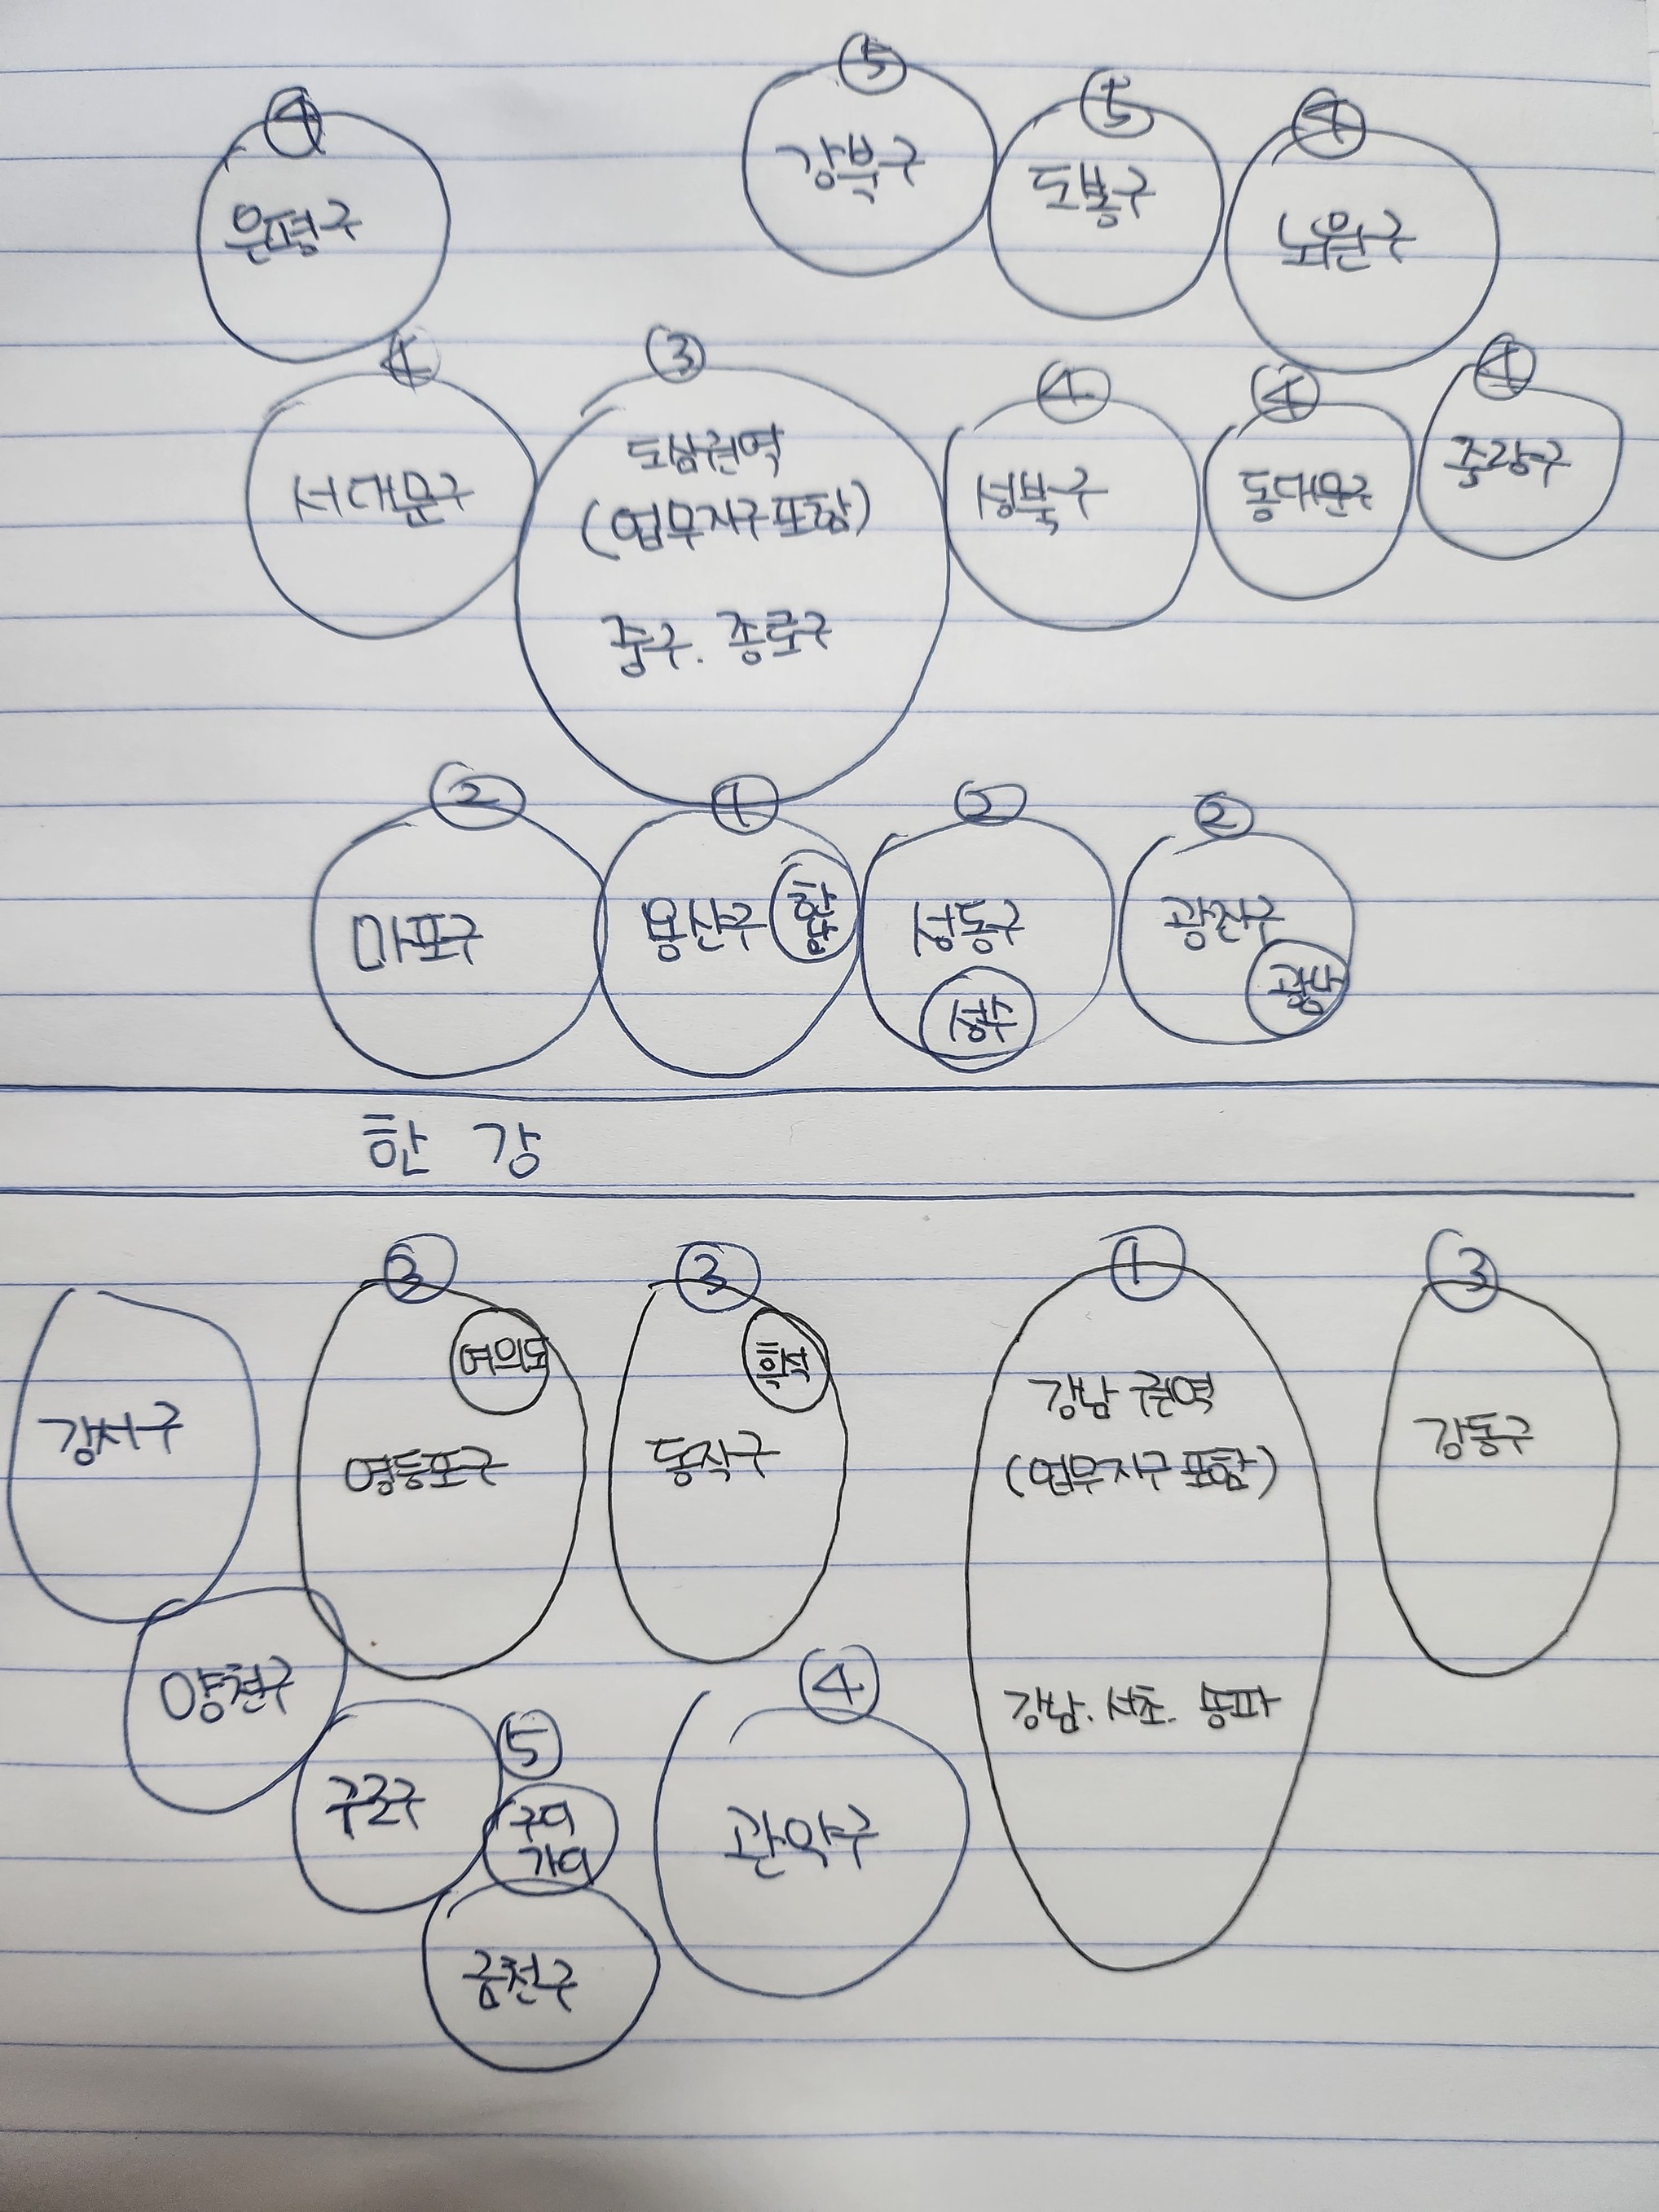 ⑤
강북구
⑤
도봉구
④
노원구
④
은평구
④
서대문구
③
도심권역
(업무지구포함)
중구. 종로구
④
성북구
④
동대문구
④
중랑구
②
마포구
①
용산구
한남
②
성동구
성수
②
광진구
광장
한강
강서구
③
여의도
영등포구
③
흑석
동작구
①
강남 권역
(업무지구 포함)
강남. 서초. 송파
③
강동구
양천구
구로구
⑤
구디
가디
금천구
④
관악구